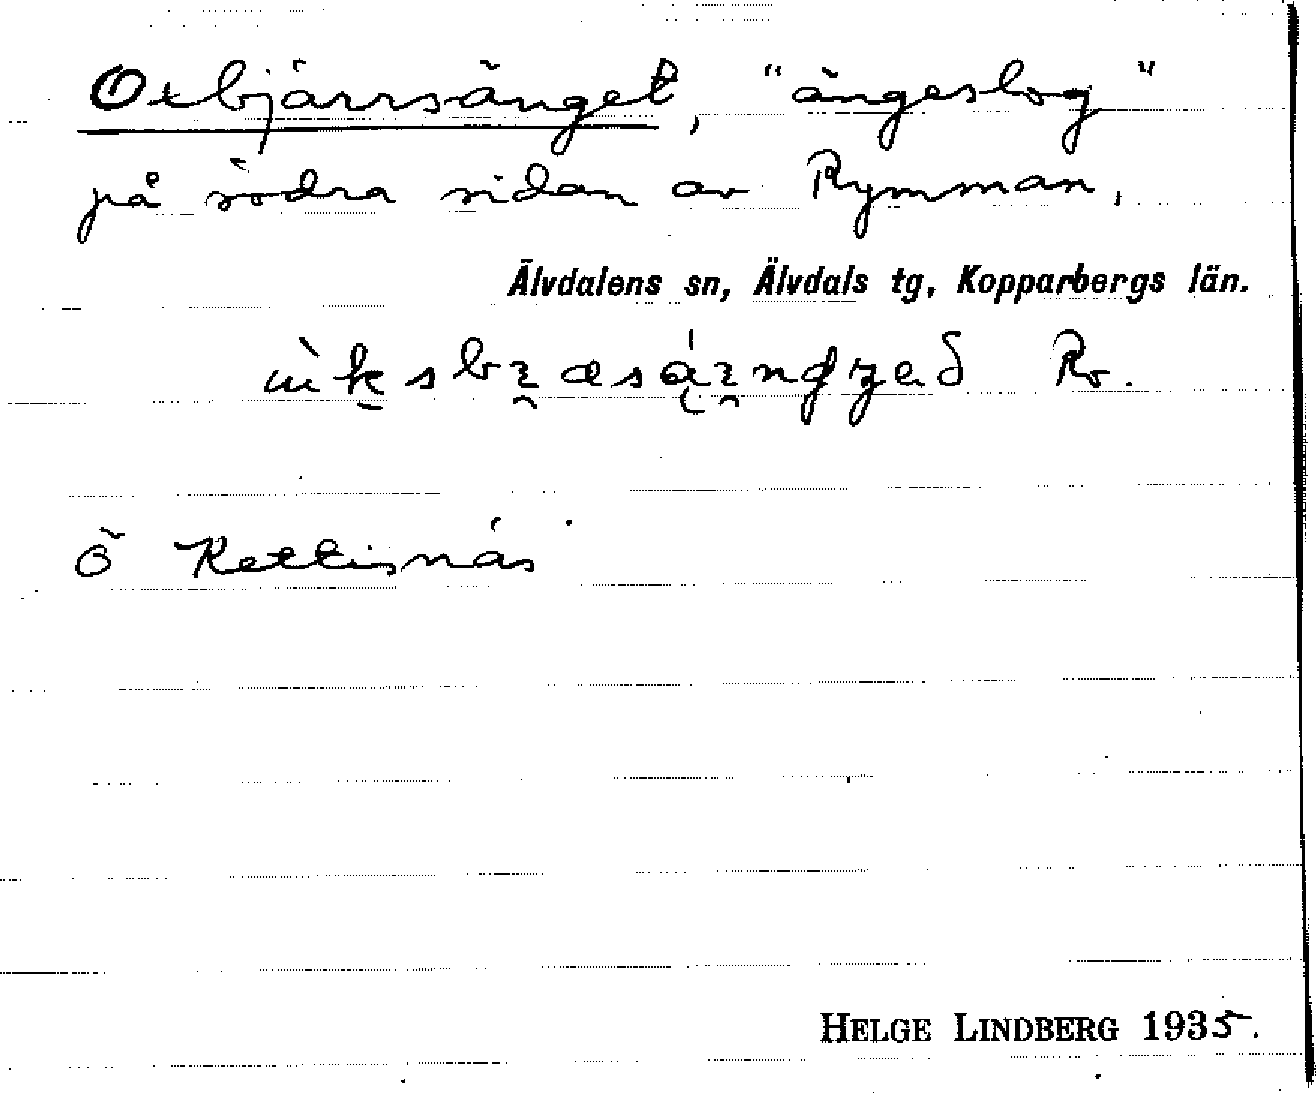 Oxbjärrsänget, "ängeslog"
på södra sidan av Rymman,
Älvdalens sn, Älvdals tg, Kopparbergs län.
Ro.
ö Rettisnäs
HELGE LINDBERG 1935.